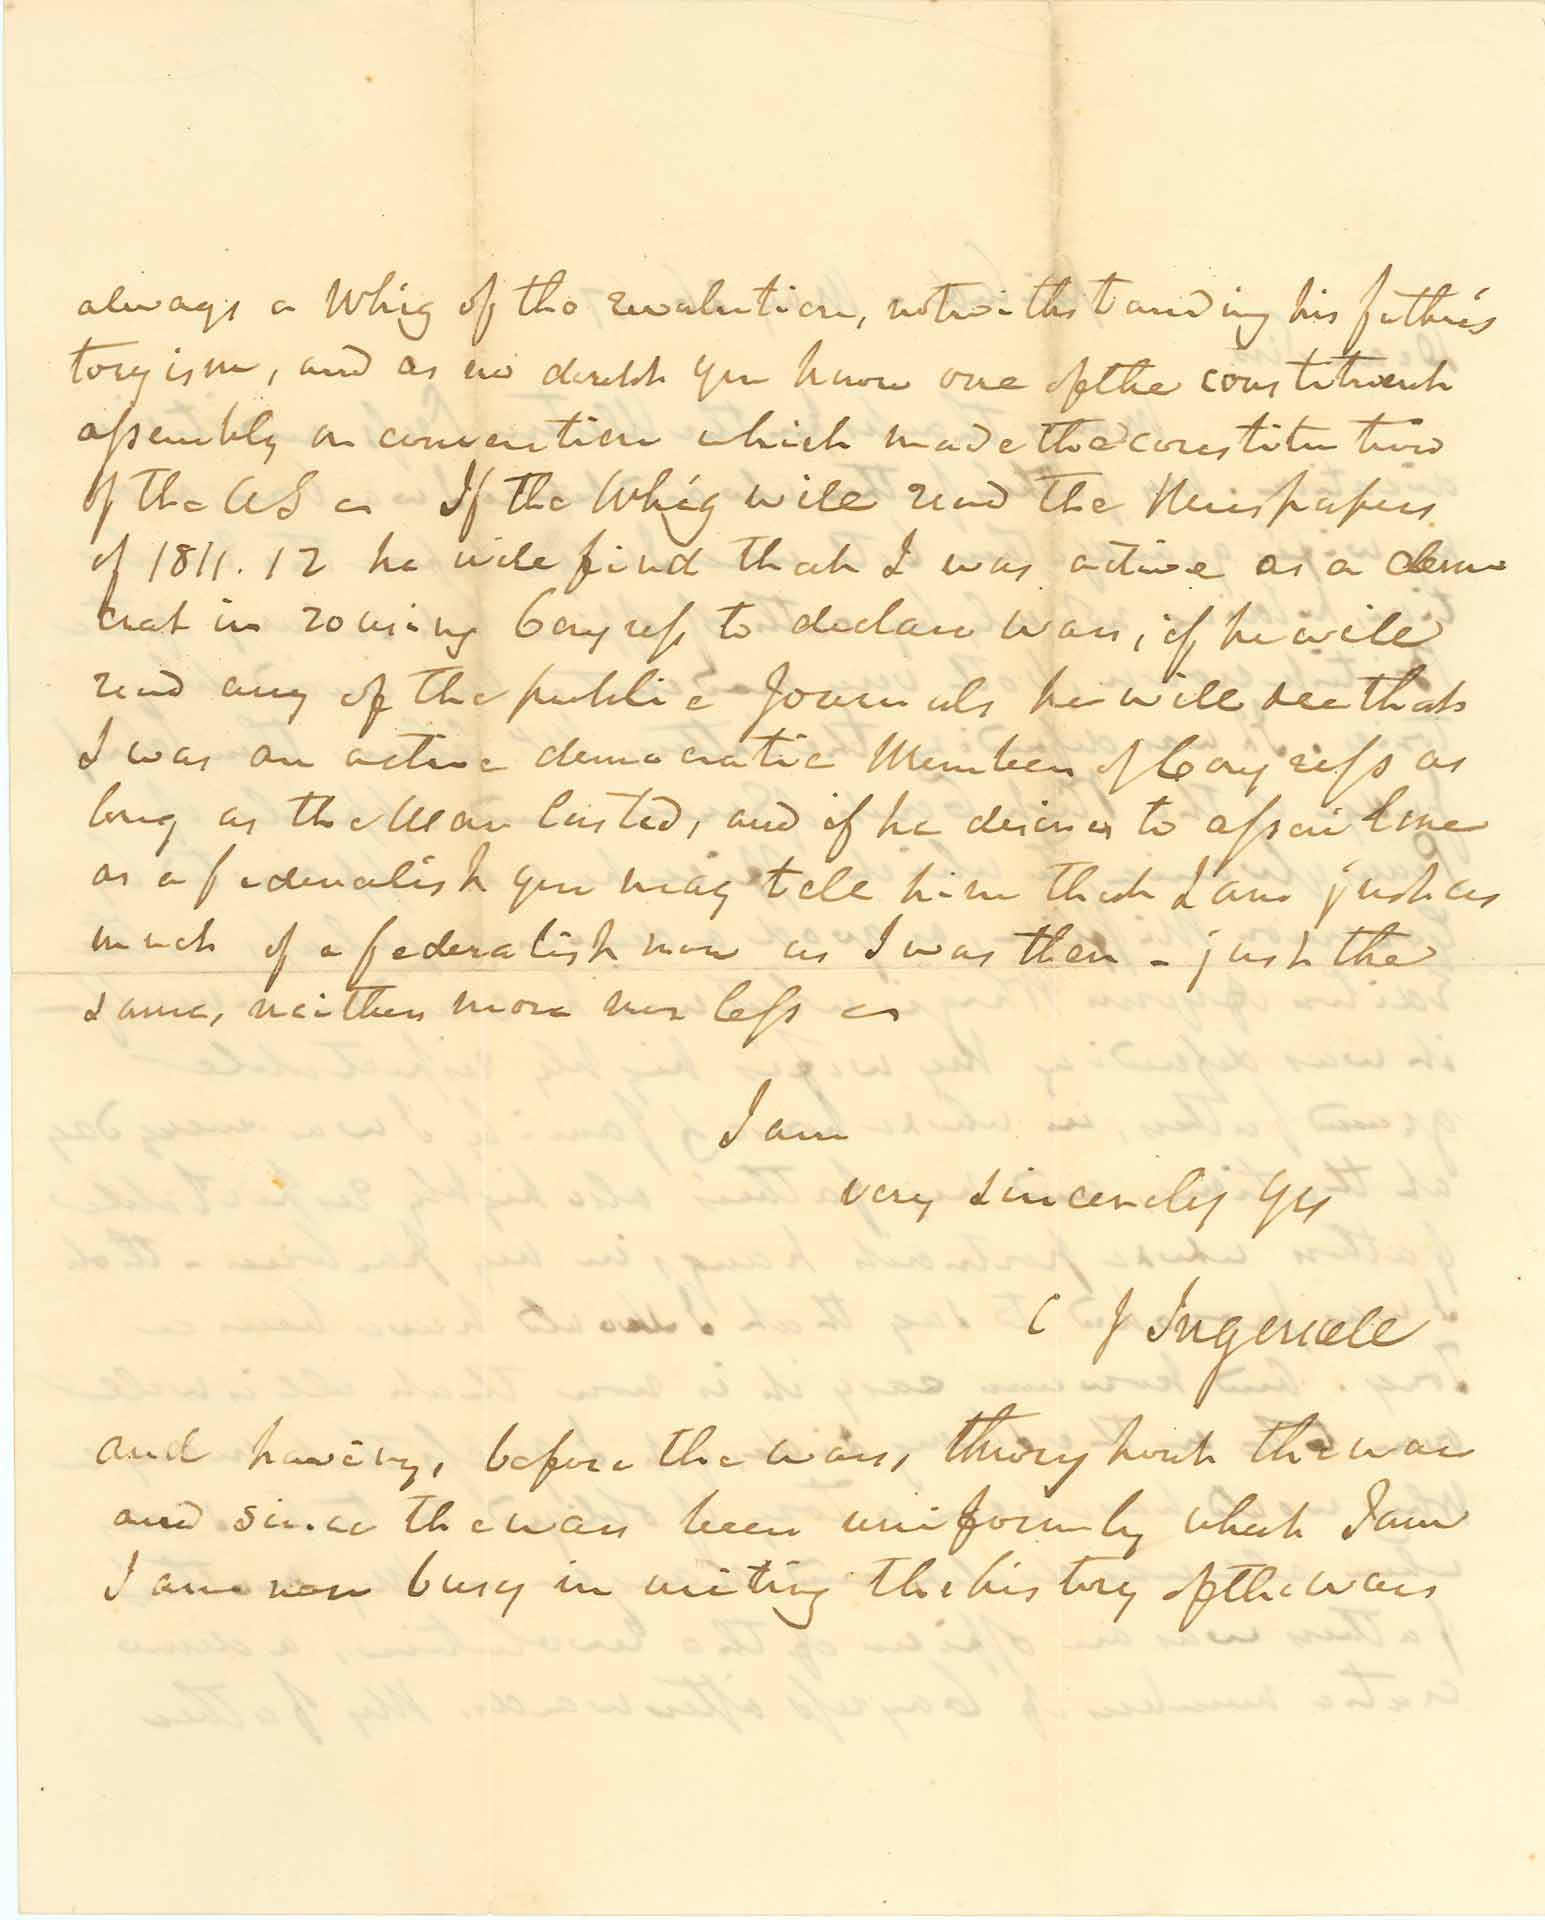 always a Whig of the revolution, notwithstanding his father's
toryism, and as no doubt you know one of the constituent
assembly or convention which made the constitution
of the US If the Whig will read the Newspapers
of 1811.12 he will find that I was active as a demo
crat in rousing Congress to declare war, if he will
read any of the public Journals he will see that
I was an active democratic Member of Congress as
long as the War lasted, and if he desires to assail me
as a federalist you may tell him that I am just as
much of a federalist now as I was then - just the
same, neither more nor less
I am
very sincerely yrs
C J Ingersoll
and having, before the war, throughout the war
and since the war been uniformly what I am
I am now busy in writing the history of the war